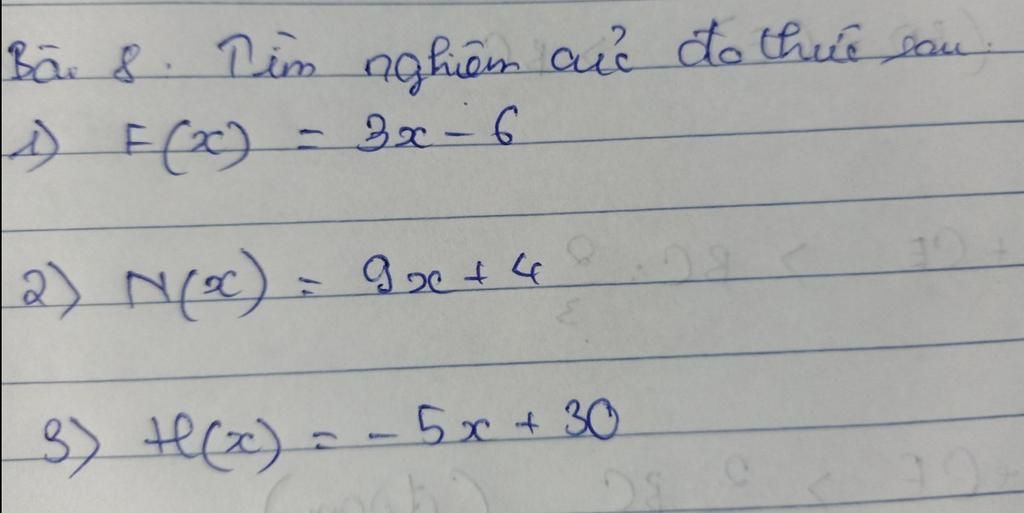 Bài 8. Tìm nghiệm củả đa thức sau.
1) F(x) = 3x - 6
2) N(x) = 9x + 4
3) H(x) = - 5x + 30